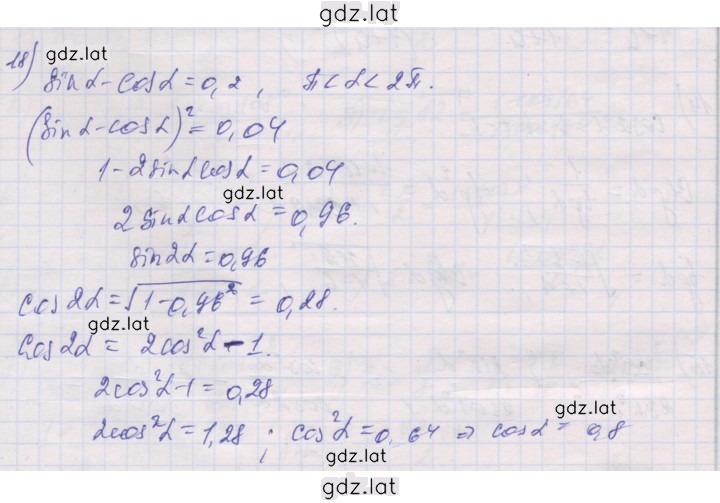 gdz.lat
gdz.lat
18) sinα-cosα=0,2, π<α<2π.
(sinα-cosα)²=0,04
1-2sinαcosα=0,04
gdz.lat
2sinαcosα=0,96.
sin2α=0,96
cos2α=√(1-0,96²)=0,28.
gdz.lat
cos2α= 2cos²α-1.
2cos²α-1=0,28
gdz.lat
2cos²α=1,28; cos²α=0,64 ⇒ cosα=0,8
gdz.lat